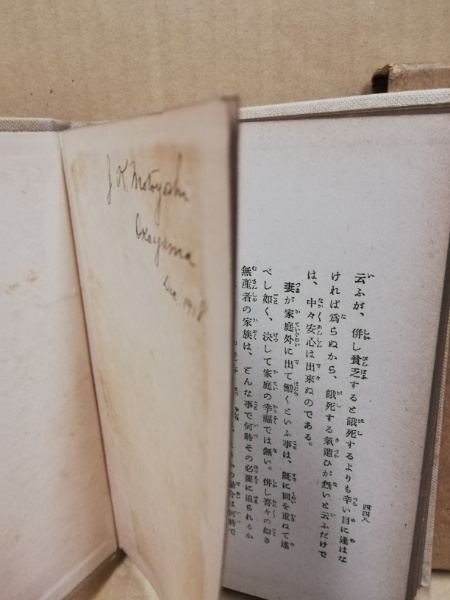 J K Motoyoshi
Okayama
Dec. 1918
四四八
云ふが、併し貧乏すると餓死するよりも辛い目に逢はな
ければ爲らぬから、餓死する氣遣ひが無いと云ふだけで
は、中々安心は出來ぬのである。
妻が家庭外に出て働くといふ事は、既に回を重ねて述
べし如く、決して家庭の幸福では無い。併し吾々の如き
無產者の家族は、どんな事で何時その必要に迫られるか